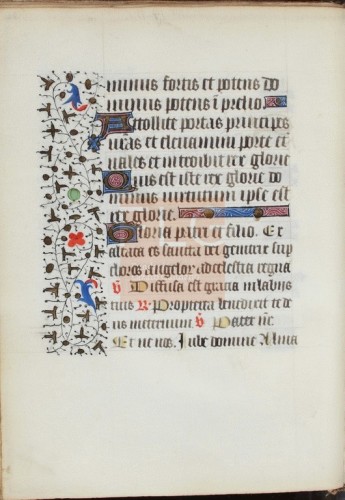 minus fortis et potens do
minus potens ī prelio.
Attollite portas principes
uras et eleuamini porte et
nales et introibit rex glorie
Quis est iste rex glorie do
minus uirtutum ipse est
rex glorie.
Gloria patri et filio. Ex
altata es sancta dei genitrix sup
choros angelorꝝ ad celestia regna
V Diffusa est gratia in labiis
tuis R Propterea benedixit te de
us in eternum V Pater nr̄.
Et ne nos. Iube domine Alma